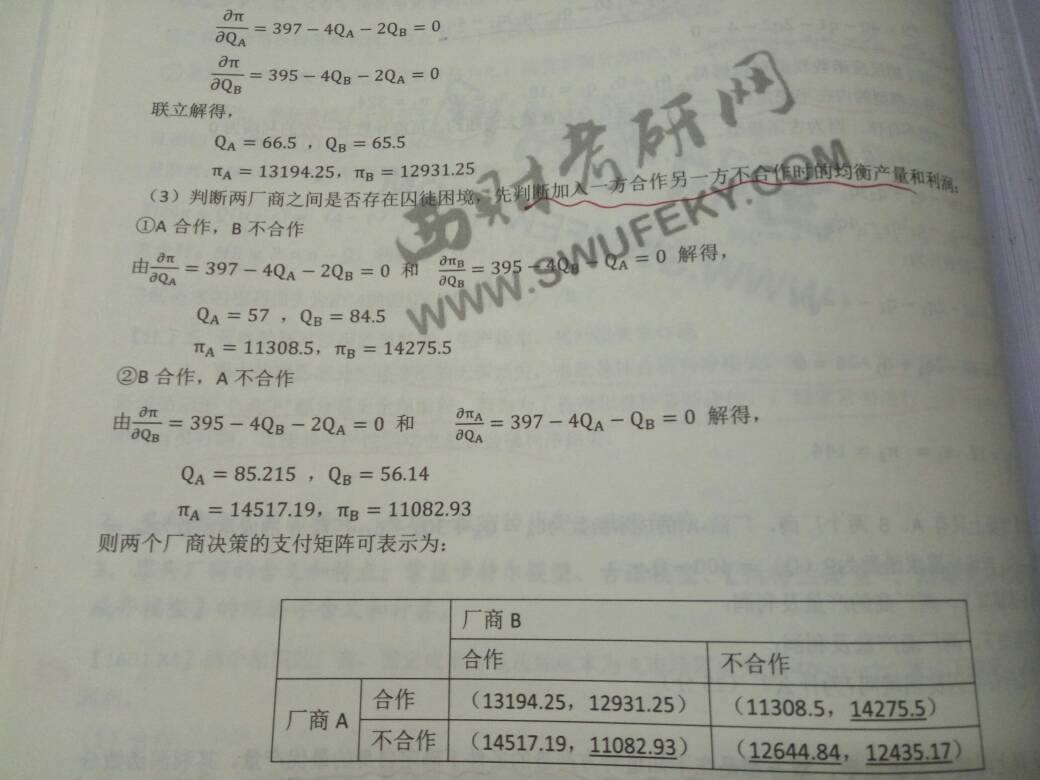 ∂π/∂Q_A = 397 − 4Q_A − 2Q_B = 0
∂π/∂Q_B = 395 − 4Q_B − 2Q_A = 0
联立解得，
Q_A = 66.5 ，Q_B = 65.5
π_A = 13194.25，π_B = 12931.25
（3）判断两厂商之间是否存在囚徒困境，先判断加入一方合作另一方不合作时的均衡产量和利润：
①A 合作，B 不合作
由 ∂π/∂Q_A = 397 − 4Q_A − 2Q_B = 0 和 ∂π_B/∂Q_B = 395 − 4Q_B − Q_A = 0 解得，
Q_A = 57 ，Q_B = 84.5
π_A = 11308.5，π_B = 14275.5
②B 合作，A 不合作
由 ∂π/∂Q_B = 395 − 4Q_B − 2Q_A = 0 和 ∂π_A/∂Q_A = 397 − 4Q_A − Q_B = 0 解得，
Q_A = 85.215 ，Q_B = 56.14
π_A = 14517.19，π_B = 11082.93
则两个厂商决策的支付矩阵可表示为：
厂商 B
合作 不合作
厂商 A
合作 （13194.25，12931.25） （11308.5，14275.5）
不合作 （14517.19，11082.93） （12644.84，12435.17）
西财考研网
WWW.SWUFEKY.COM